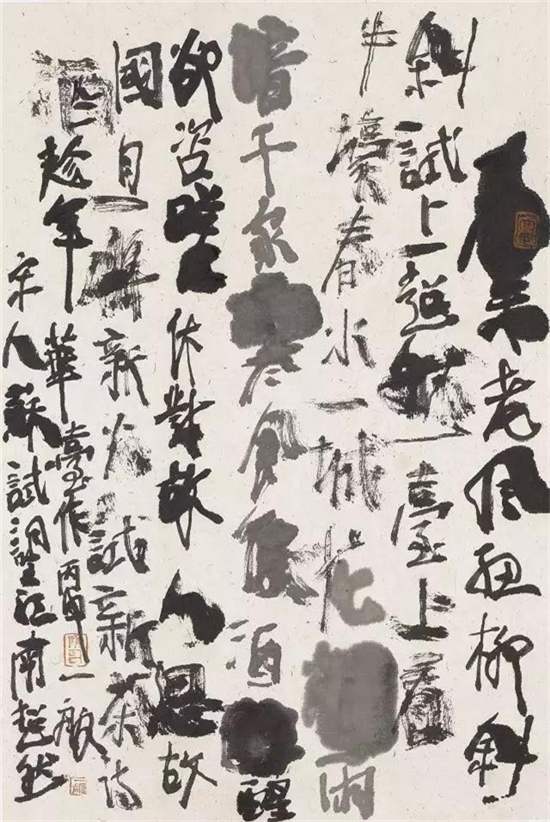 春未老風細柳斜
斜試上超然臺上看
半壕春水一城花烟雨
暗千家寒食後酒醒
卻咨嗟休對故人思故
國且將新火試新茶詩
酒趁年華
宋人蘇軾望江南超然
臺作丙申一